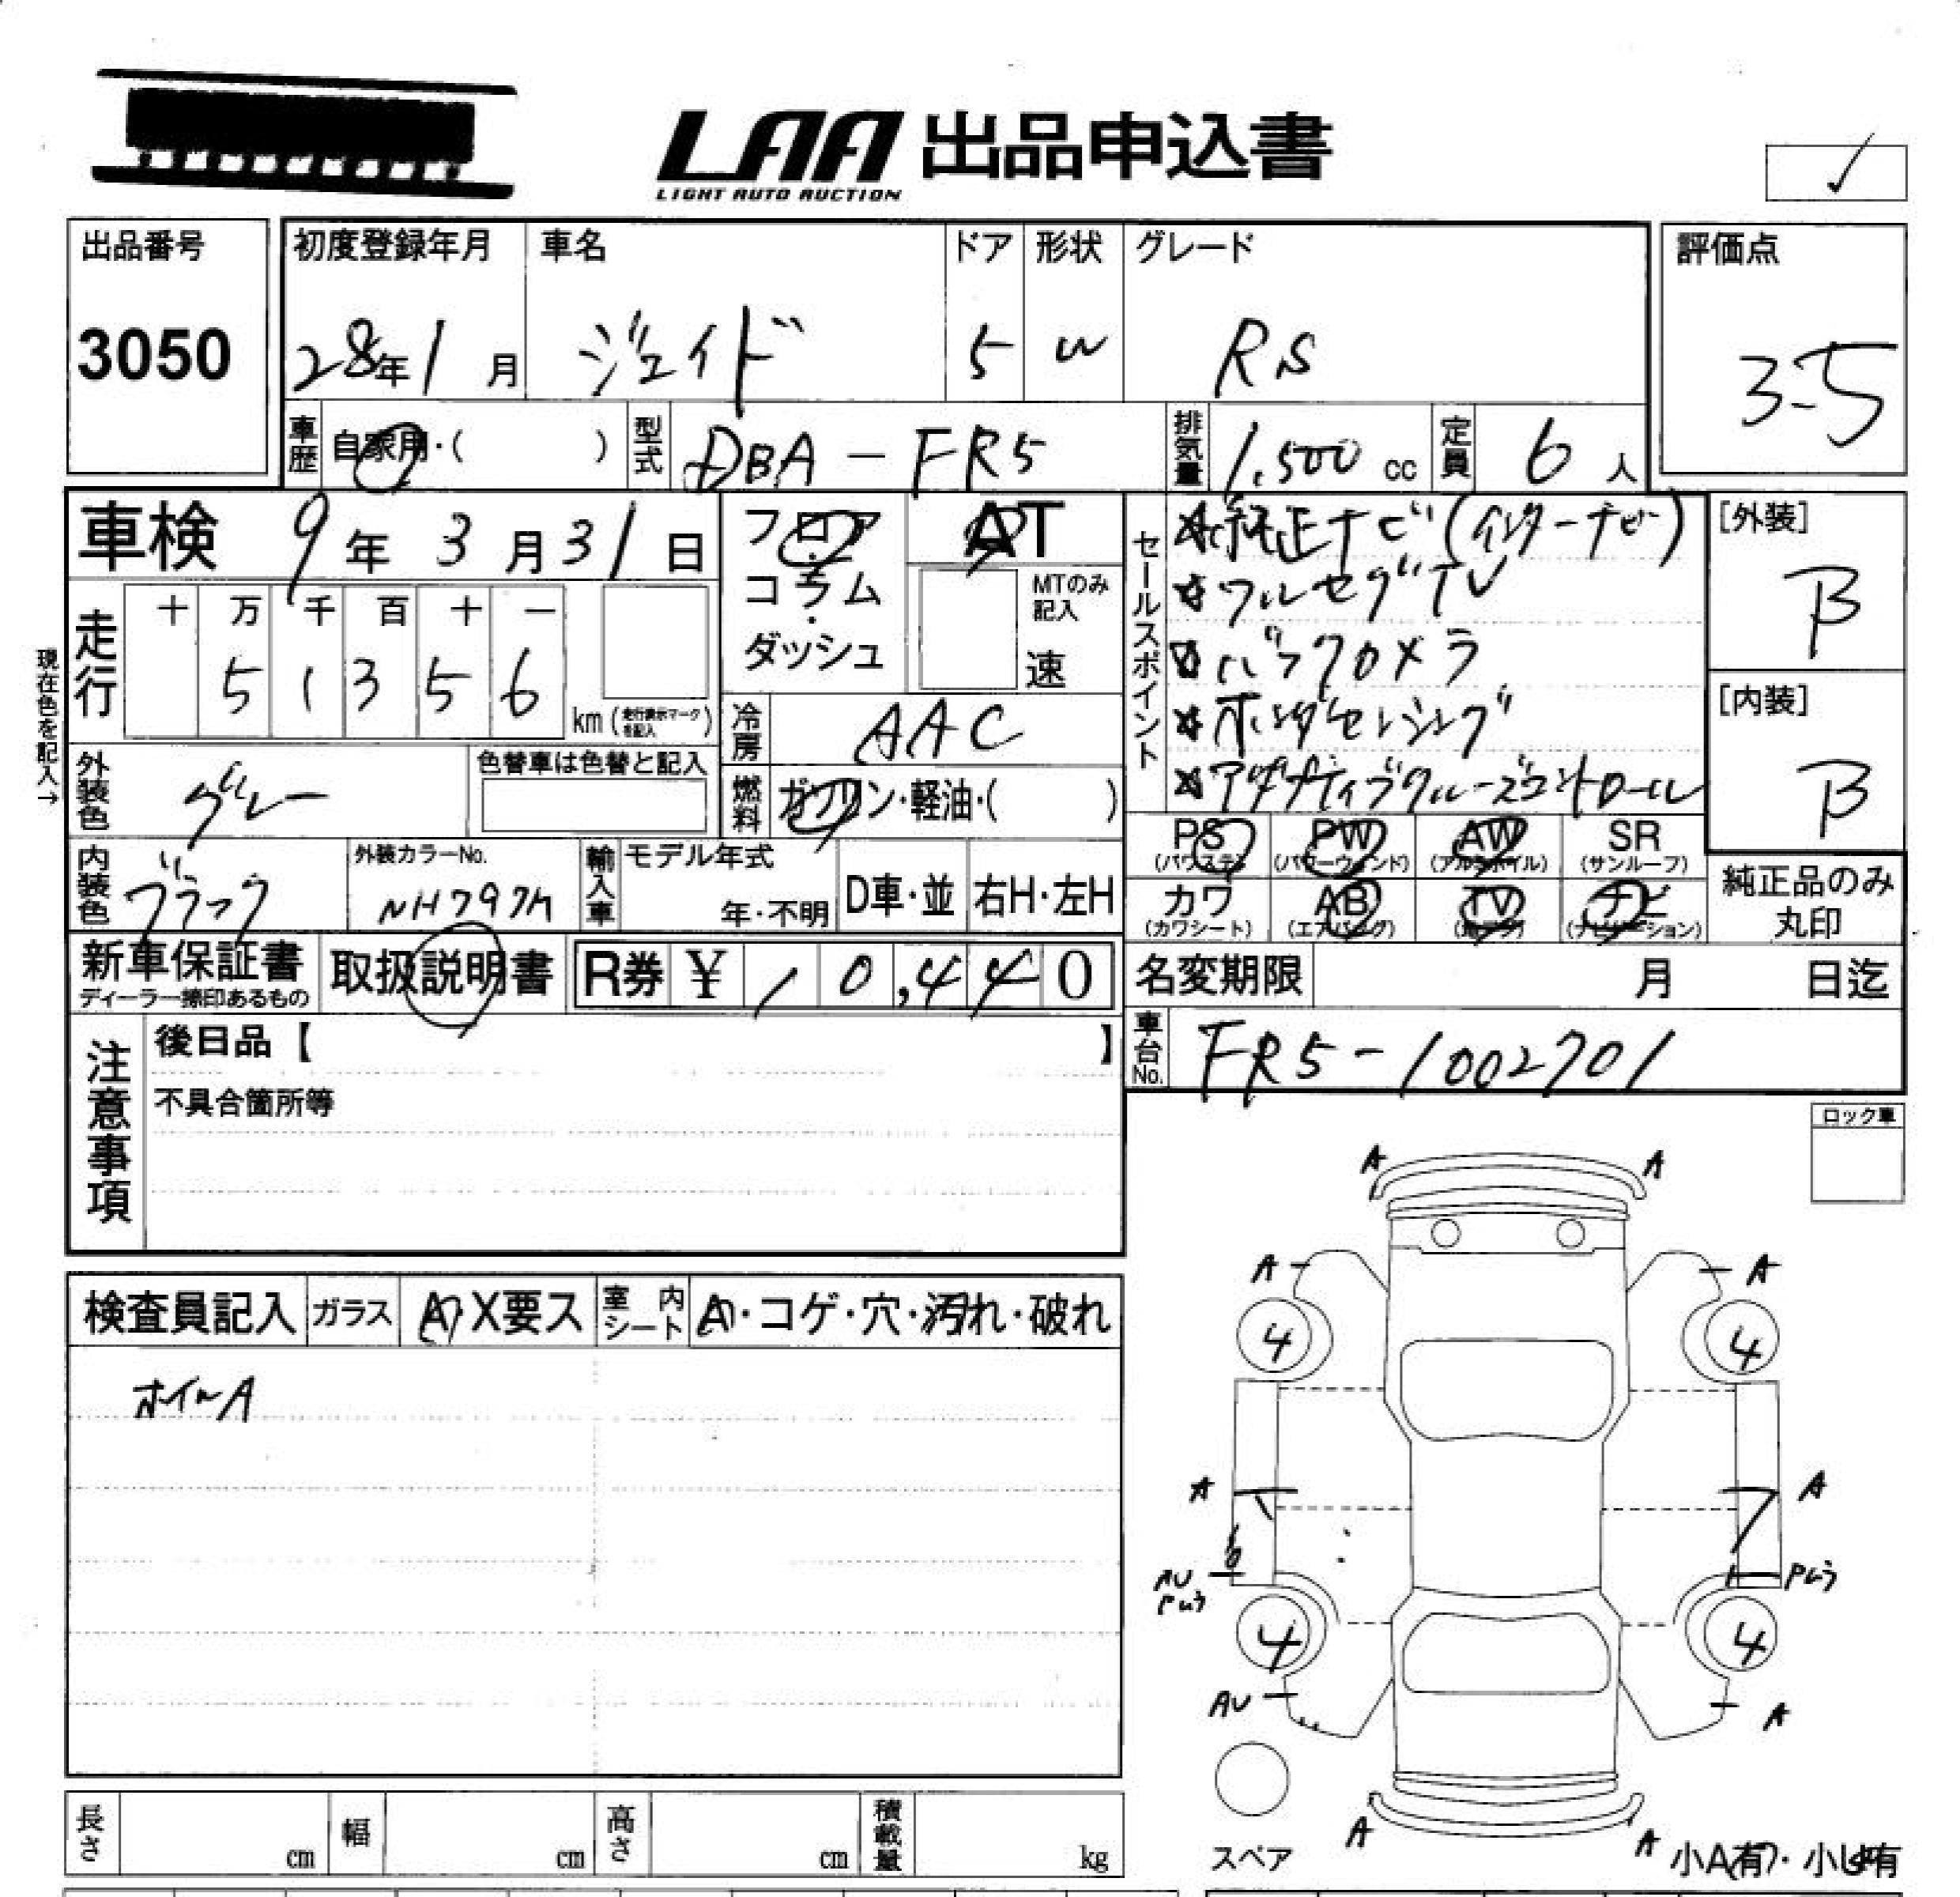 LAA 出品申込書
LIGHT AUTO AUCTION
出品番号
3050
初度登録年月
28年1月
車名
ジェイド
ドア
5
形状
W
グレード
RS
評価点
3.5
車歴
自家用・( )
型式
DBA-FR5
排気量
1,500 cc
定員
6 人
車検 9年3月31日
フロア・コラム・ダッシュ
AT
MTのみ記入
速
走行
十 万 千 百 十 一
5 1 3 5 6
km (走行表示マークを記入)
現在色を記入→
冷房
AAC
外装色
グレー
色替車は色替と記入
燃料
ガソリン・軽油・( )
内装色
ブラック
外装カラーNo.
NH797M
輸入車
モデル年式
年・不明
D車・並
右H・左H
セールスポイント
☆純正ナビ(インターナビ)
☆フルセグTV
☆バックカメラ
☆ホンダセンシング
☆アダプティブクルーズコントロール
[外装]
B
[内装]
B
PS (パワステ)
PW (パワーウィンド)
AW (アルミホイル)
SR (サンルーフ)
カワ (カワシート)
AB (エアバッグ)
TV (地デジ)
ナビ (ナビゲーション)
純正品のみ丸印
新車保証書
ディーラー捺印あるもの
取扱説明書
R券 ¥ 10,440
名変期限 月 日迄
注意事項
後日品【 】
不具合箇所等
車台No.
FR5-1002701
ロック車
検査員記入
ガラス
A・X要ス
室内シート
A・コゲ・穴・汚れ・破れ
ホイルA
A A
A A
4 4
A A
AU
4 4
AU A
スペア
A A
小A有・小U有
長さ cm
幅 cm
高さ cm
積載量 kg